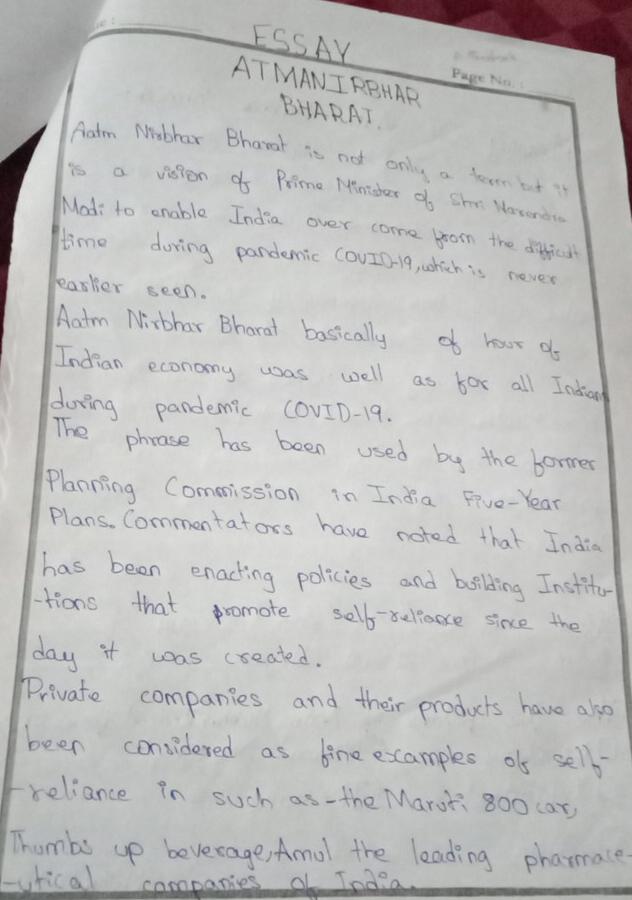 ESSAY
Page No. :
ATMANIRBHAR
BHARAT.
Aatm Nirbhar Bharat is not only a term but it
is a vision of Prime Minister of Shri Narendra
Modi to enable India over come from the difficult
time during pandemic COVID-19, which is never
earlier seen.
Aatm Nirbhar Bharat basically of hour of
Indian economy was well as for all Indian
during pandemic COVID-19.
The phrase has been used by the former
Planning Commission in India Five-Year
Plans. Commentators have noted that India
has been enacting policies and building Institu-
-tions that promote self-reliance since the
day it was created.
Private companies and their products have also
been considered as fine examples of self-
-reliance in such as - the Maruti 800 car,
Thumbs up beverage, Amul the leading pharmace-
-utical companies of India.